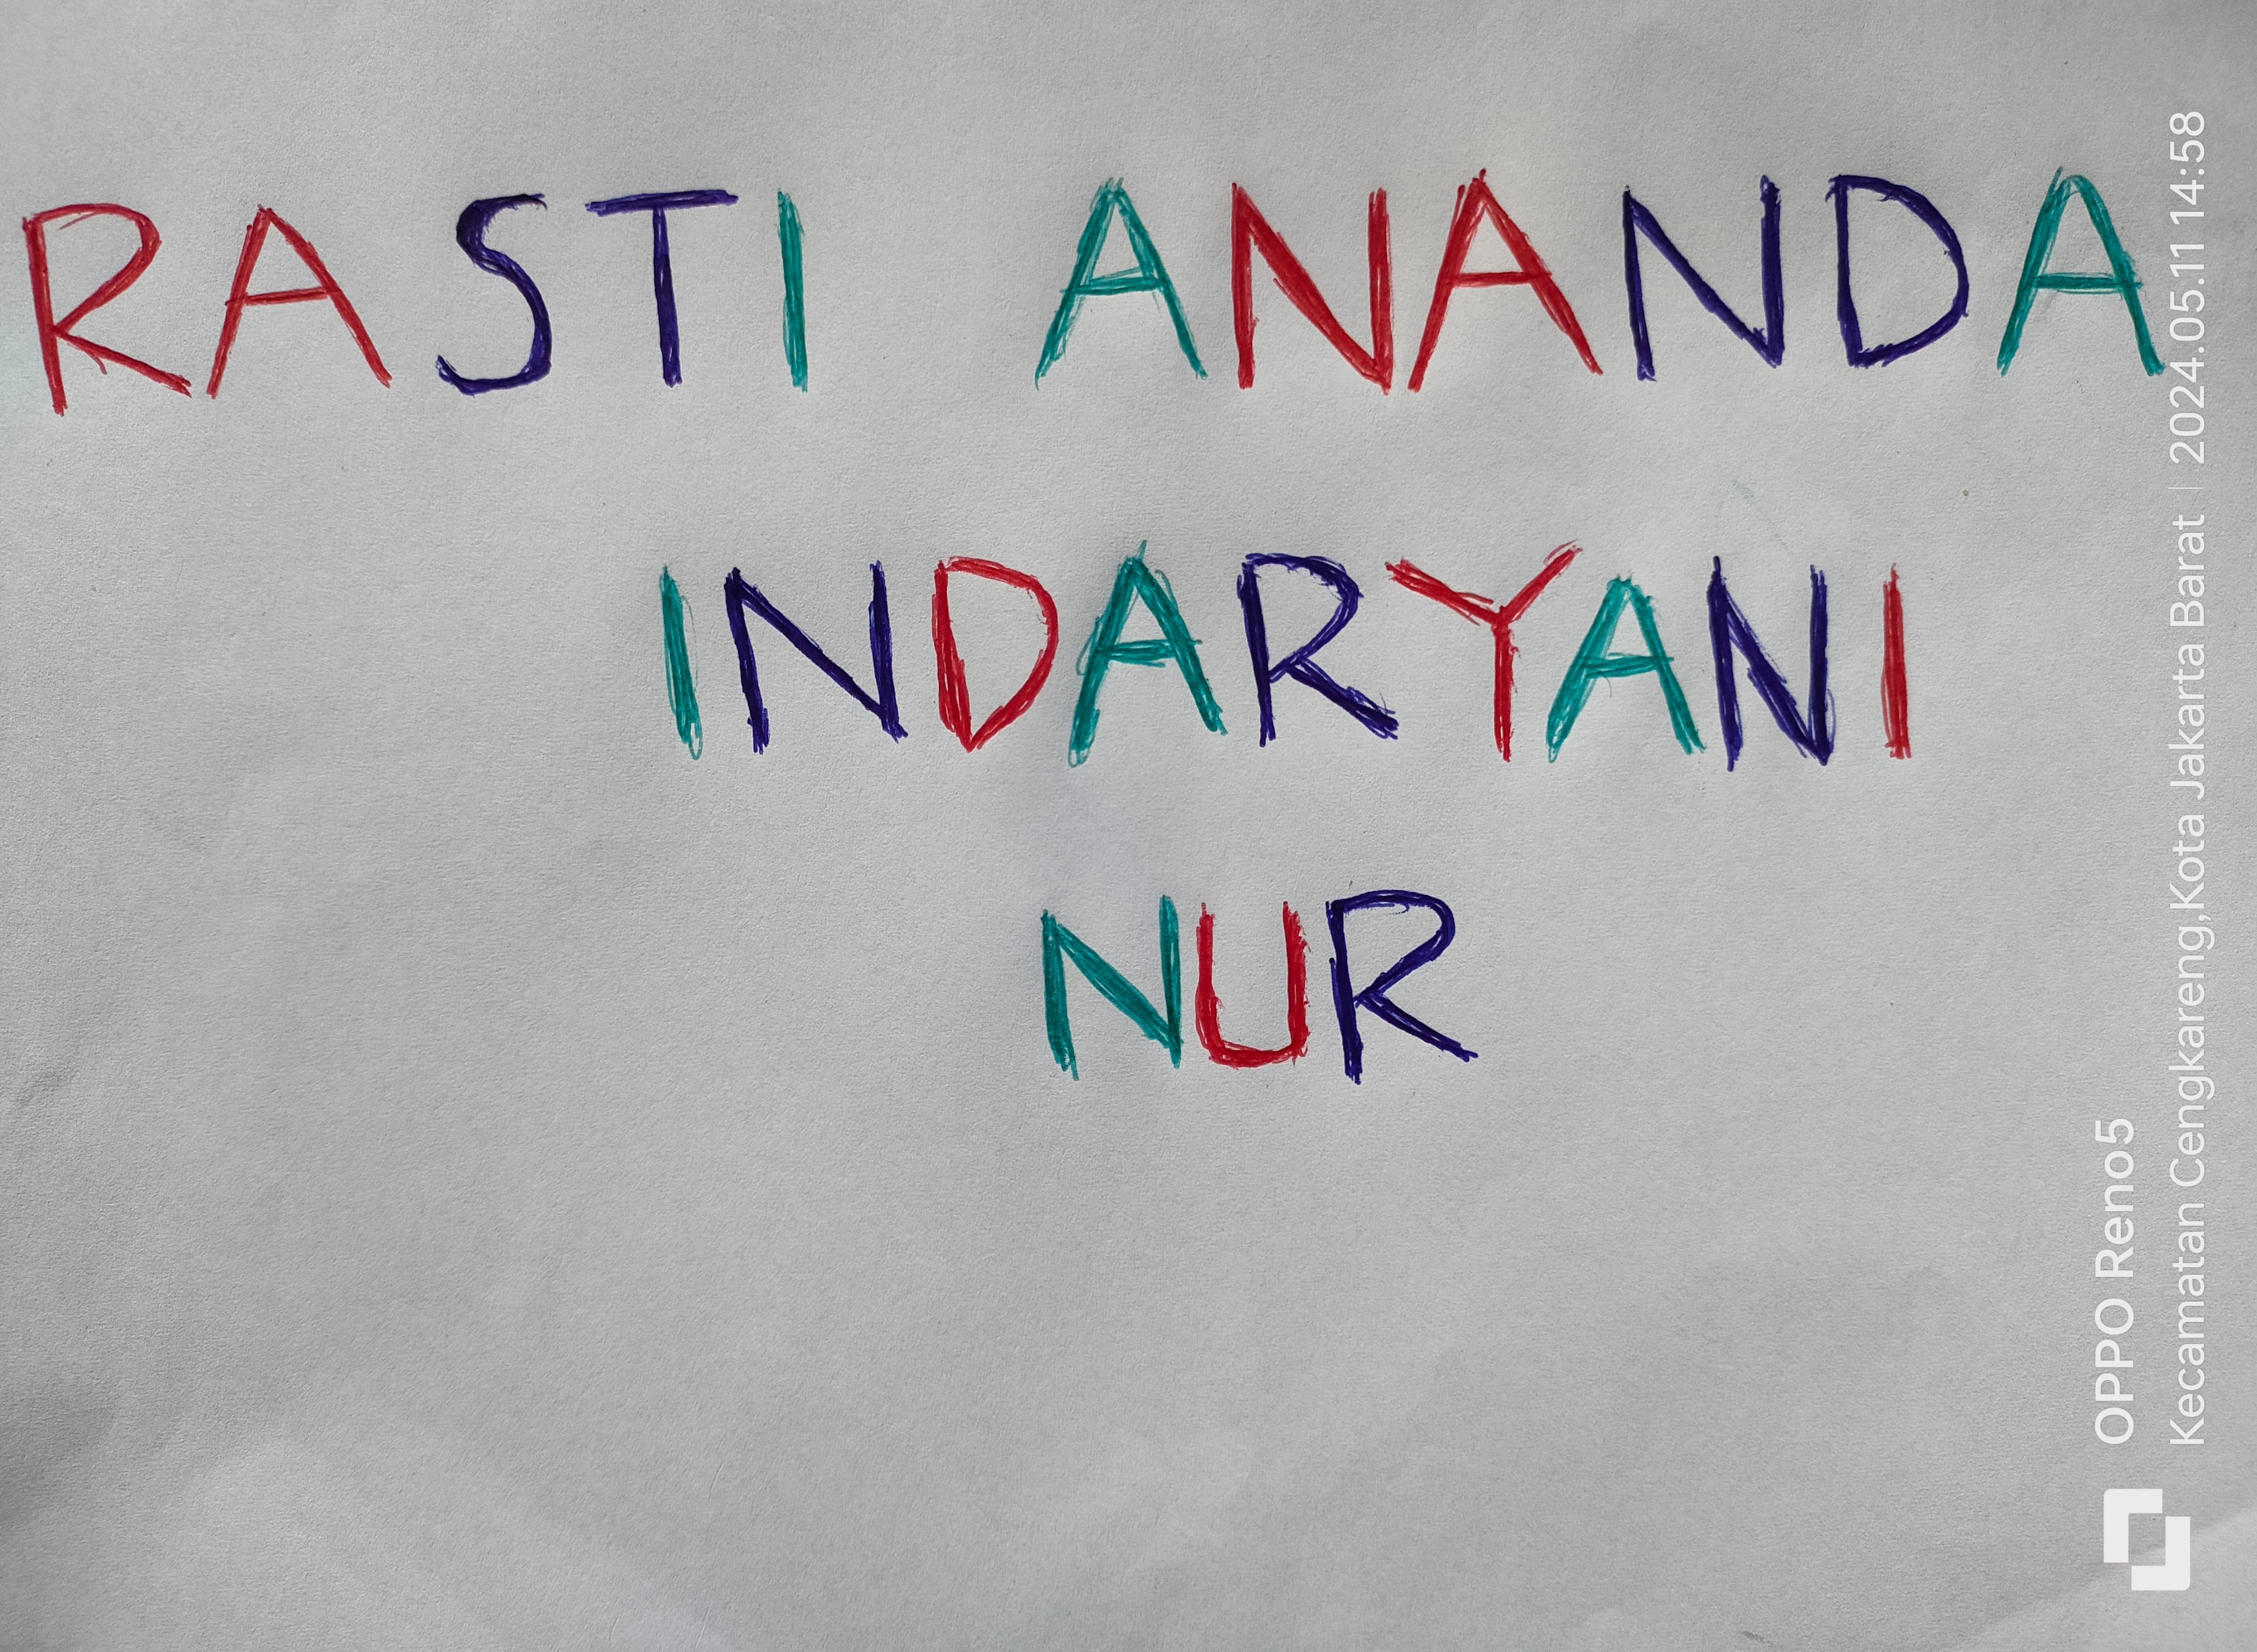 RASTI ANANDA
INDARYANI
NUR
OPPO Reno5
Kecamatan Cengkareng,Kota Jakarta Barat | 2024.05.11 14:58